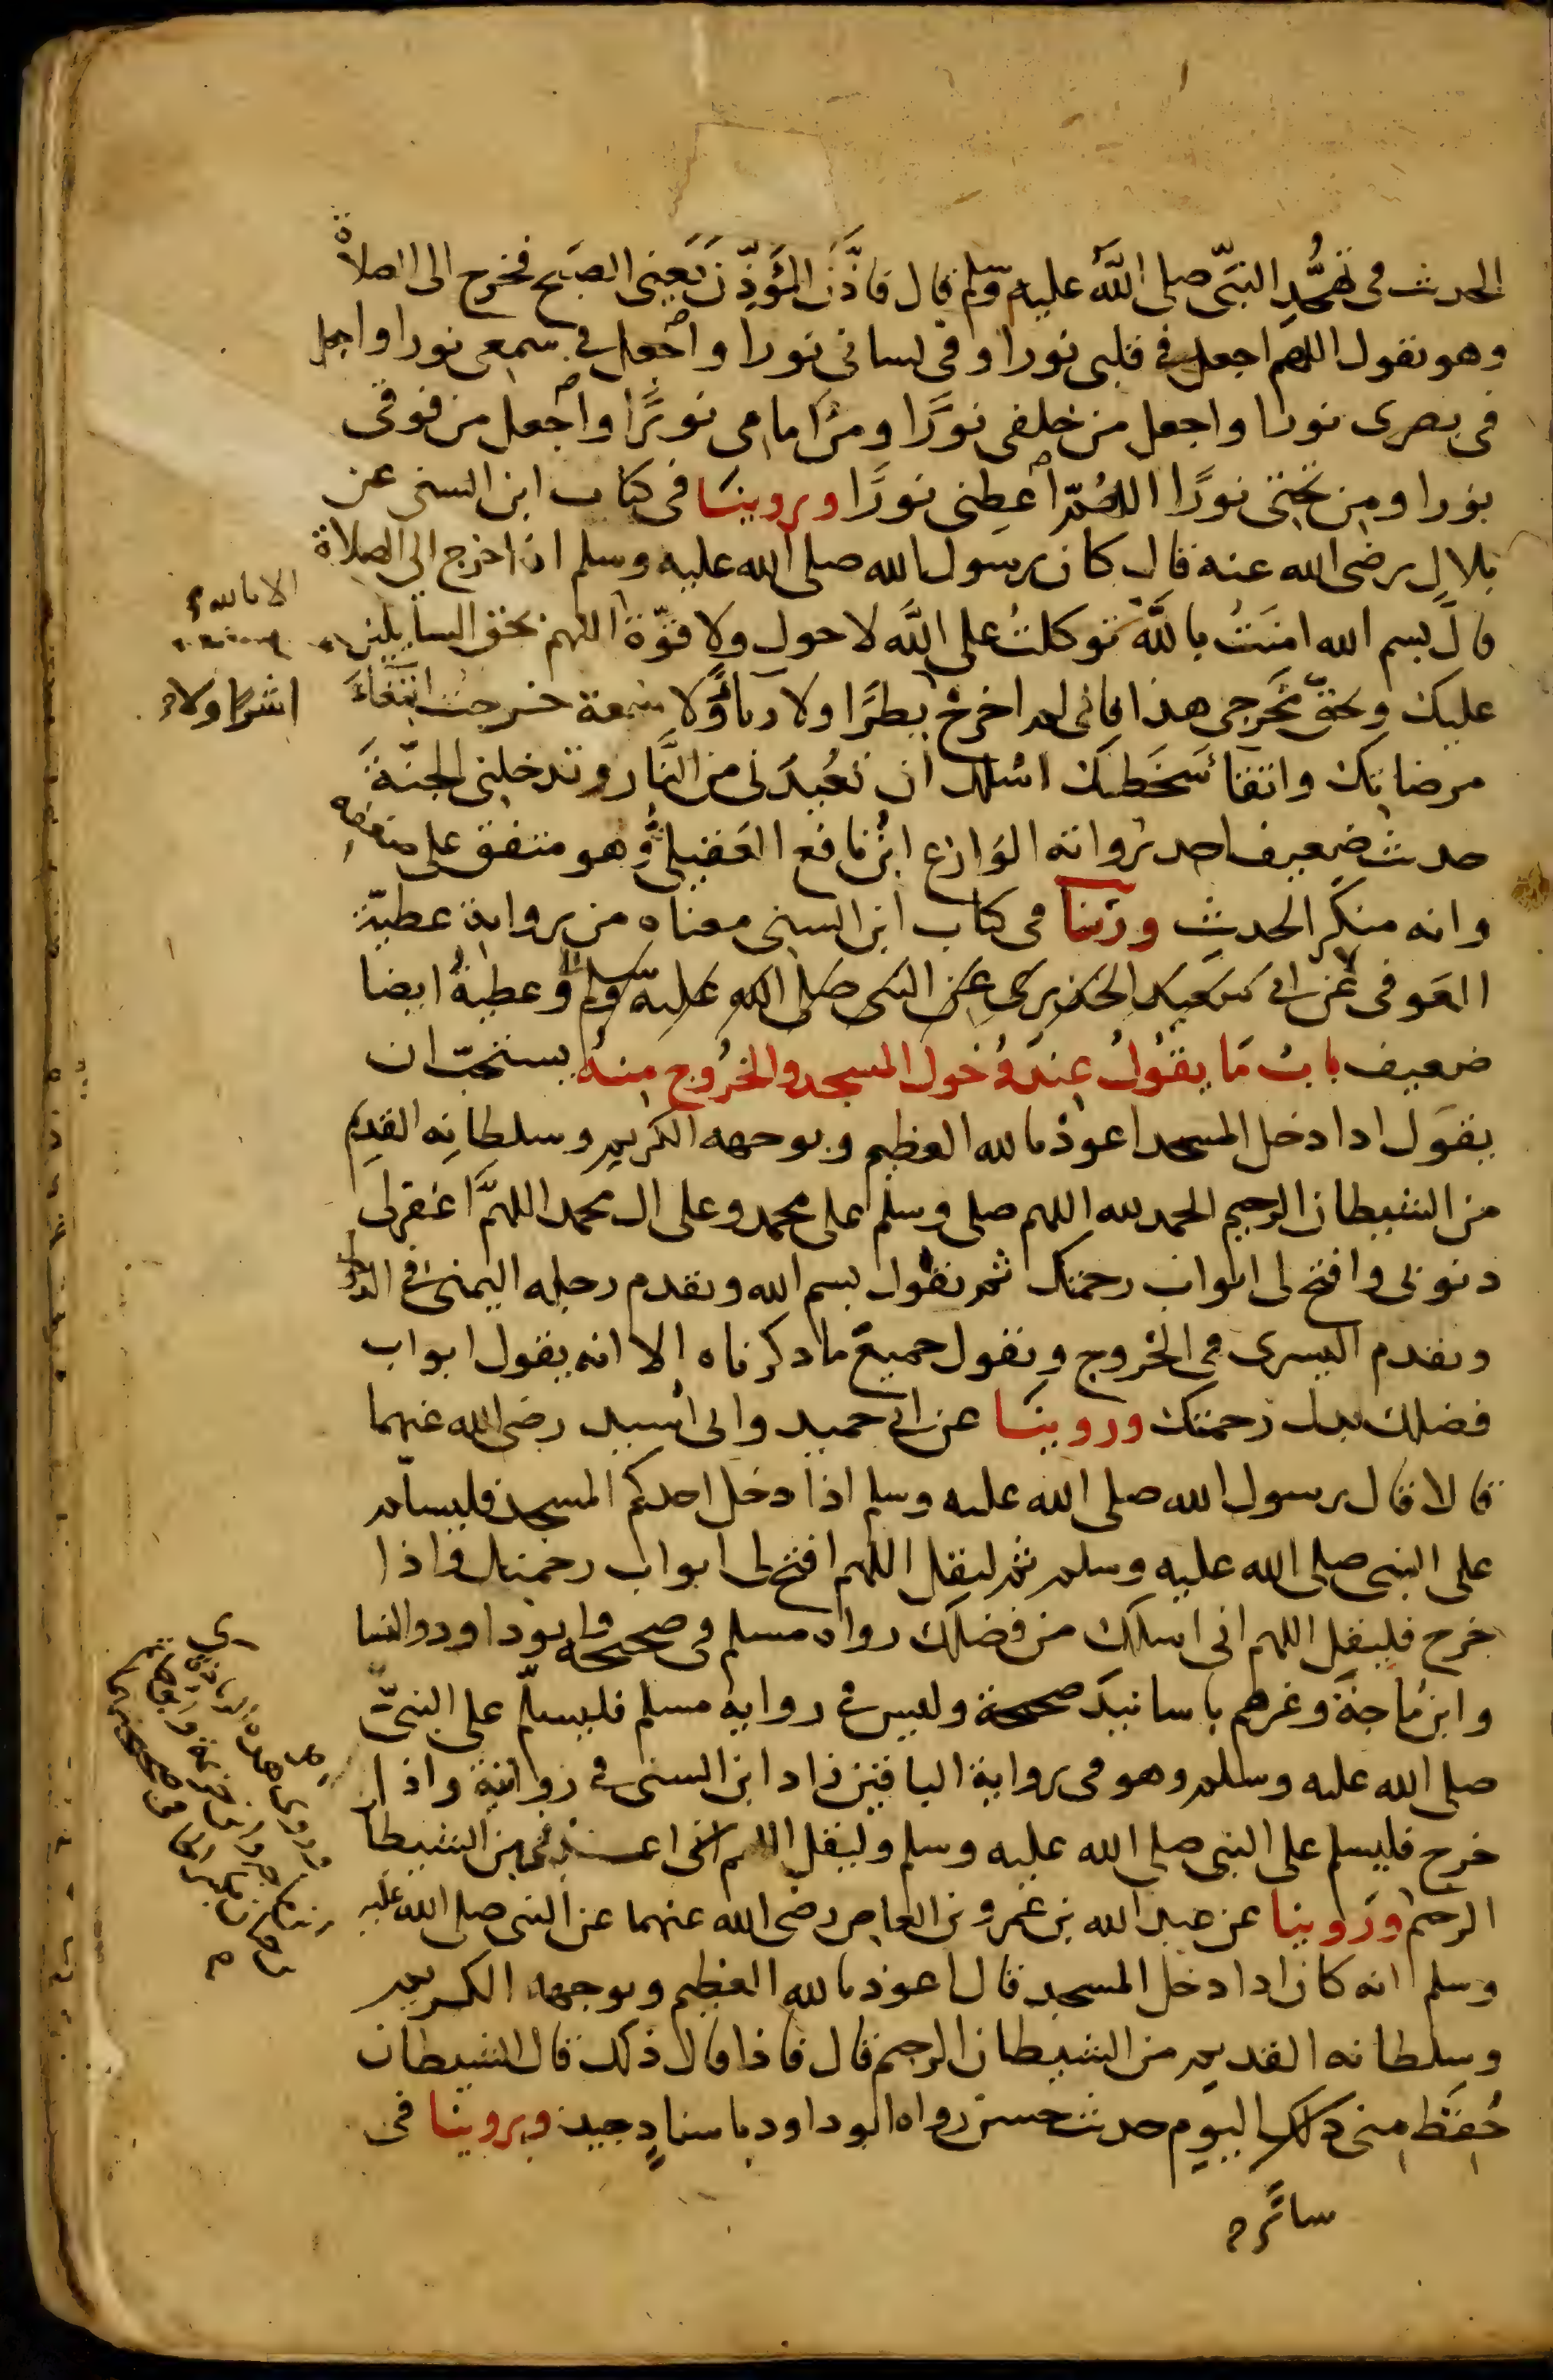 الحديث في تهجُّدِ النبيّ صلى الله عليه وسلم قال فاذَّنَ المُؤَذِّنُ يَعني الصبح فخرج الى الصلاة
وهو يقول اللهم اجعل في قلبي نورا وفي لساني نورا واجعل في سمعي نورا واجعل
في بصري نورا واجعل من خلفي نورًا ومن امامي نورًا واجعل من فوقي
نورا ومن تحتي نورًا اللهمّ اعطِني نورًا وروينَا في كتاب ابن السني عن
بلالٍ رضي الله عنه قال كان رسول الله صلى الله عليه وسلم اذا خرج الى الصلاة
قال بسم الله امنتُ بالله توكلتُ على الله لا حول ولا قوّة اللهم بحق السايلين
الا بالله
عليك وبحق مَخرجي هذا فاني لم اخرج بطرًا ولا رياءً ولا سمعة خرجت ابتغاءَ
اشرًا ولا
مرضاتك واتقا سَخَطِك اسلك ان تُعيذَني من النَّار وتدخلني الجنّةَ
حديث ضعيف احد رواته الوازع ابنُ نافع العقيليُّ وهو متفق على ضعفه
وانه منكَر الحديث وروينا في كتاب ابن السني معناه من رواية عطيّة
العَوفي عن ابي سعيد الخدري عن النبي صلى الله عليه وسلم وعطيةُ ايضا
ضعيف بابُ مَا يقُولُ عِندَ دُخول المسجد والخرُوج منهُ يستحبّ ان
يقول اذا دخل المسجد اعوذ بالله العظيم وبوجهه الكريم وسلطانِه القديم
من الشيطان الرجيم الحمد لله اللهم صلي وسلم على محمد وعلى ال محمد اللهمَّ اغفر لي
ذنوبي وافتح لي ابواب رحمتك ثم يقول بسم الله ويقدم رجله اليمنى في الدخول
ويقدم اليسرى في الخروج ويقول جميعَ ما ذكرناه الا انه يقول ابواب
فضلك بدل رحمتك وروينَا عن ابي حميد وابي اُسيد رضي الله عنهما
قالا قال رسول الله صلى الله عليه وسلم اذا دخل احدكم المسجد فليسلم
على النبي صلى الله عليه وسلم ثم ليقل اللهم افتح لي ابواب رحمتك واذا
خرج فليقل اللهم اني اسلك من فضلك رواه مسلم في صحيحه وابو داود والنسا
وابن مَاجَةَ وغيرهم باسانيدَ صحيحة وليس في رواية مسلم فليسلّم على النبيّ
صلى الله عليه وسلم وهو في رواية الباقين زاد ابن السني في روايته واذا
خرج فليسلم على النبي صلى الله عليه وسلم وليقل اللهم اعذني من الشيطا
الرجيم وروينا عن عبد الله بن عمرو بن العاص رضي الله عنهما عن النبي صلى الله عليه
وسلم انه كان اذا دخل المسجد قال اعوذ بالله العظيم وبوجهه الكريم
وسلطانه القديم من الشيطان الرجيم قال فاذا قال ذلك قال الشيطان
حُفِظَ مني ذلك اليوم حديث حسن رواه ابو داود باسنادٍ جيد وروينا في
سائره